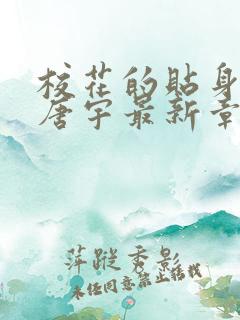 校花的贴身
唐宇最新章
萍踪秀影
未经同意禁止转载